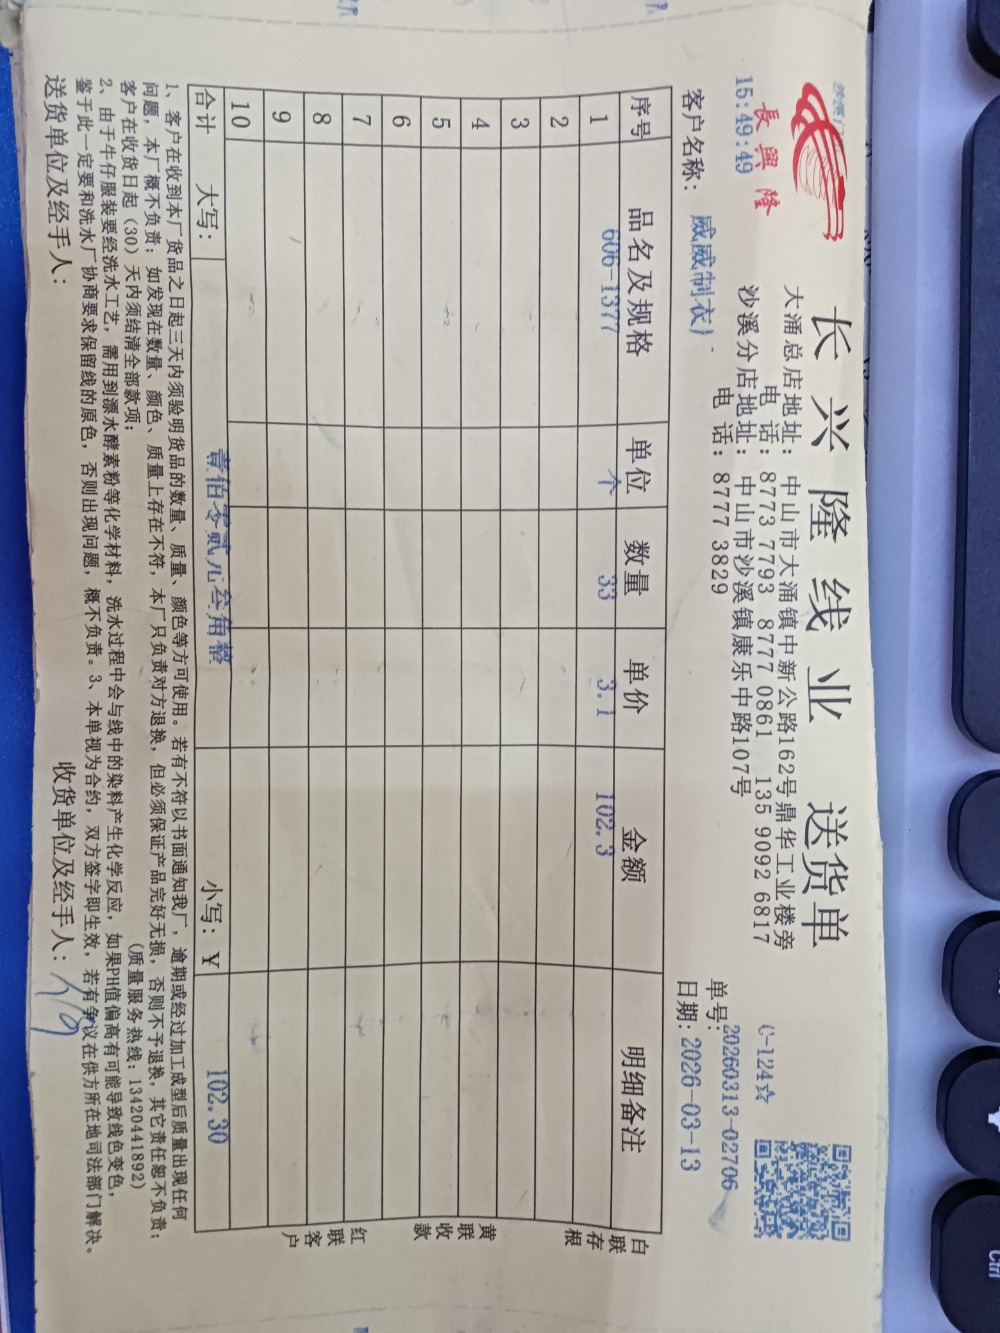 長興隆
长兴隆线业 送货单
C-124☆
15:49:49
大涌总店地址：中山市大涌镇中新公路162号鼎华工业楼旁
电 话：8773 7793 8777 0861 135 9092 6817
沙溪分店地址：中山市沙溪镇康乐中路107号
电 话：8777 3829
单号：20260313-02706
客户名称：威威制衣厂
日期：2026-03-13
序号 品名及规格 单位 数量 单价 金额 明细备注
1 606-1377 个 33 3.1 102.3
2
3
4
5
6
7
8
9
10
合计 大写： 壹佰零贰元叁角整 小写：￥ 102.30
白联存根
黄联收款
红联客户
1、客户在收到本厂货品之日起三天内须验明货品的数量、质量、颜色等方可使用。若有不符以书面通知我厂，逾期或经过加工成型后质量出现任何
问题，本厂概不负责；如发现在数量、颜色、质量上存在不符，本厂只负责对方退换，但必须保证产品完好无损，否则不予退换，其它责任恕不负责；
客户在收货日起（30）天内须结清全部款项； （质量服务热线：13420441892）
2、由于牛仔服装要经洗水工艺，需用到漂水酵素粉等化学材料，洗水过程中会与线中的染料产生化学反应，如果PH值偏高有可能导致线色变色，
鉴于此一定要和洗水厂协商要求保留线的原色，否则出现问题，概不负责。3、本单视为合约，双方签字即生效，若有争议在供方所在地司法部门解决。
送货单位及经手人： 收货单位及经手人：
Ctrl